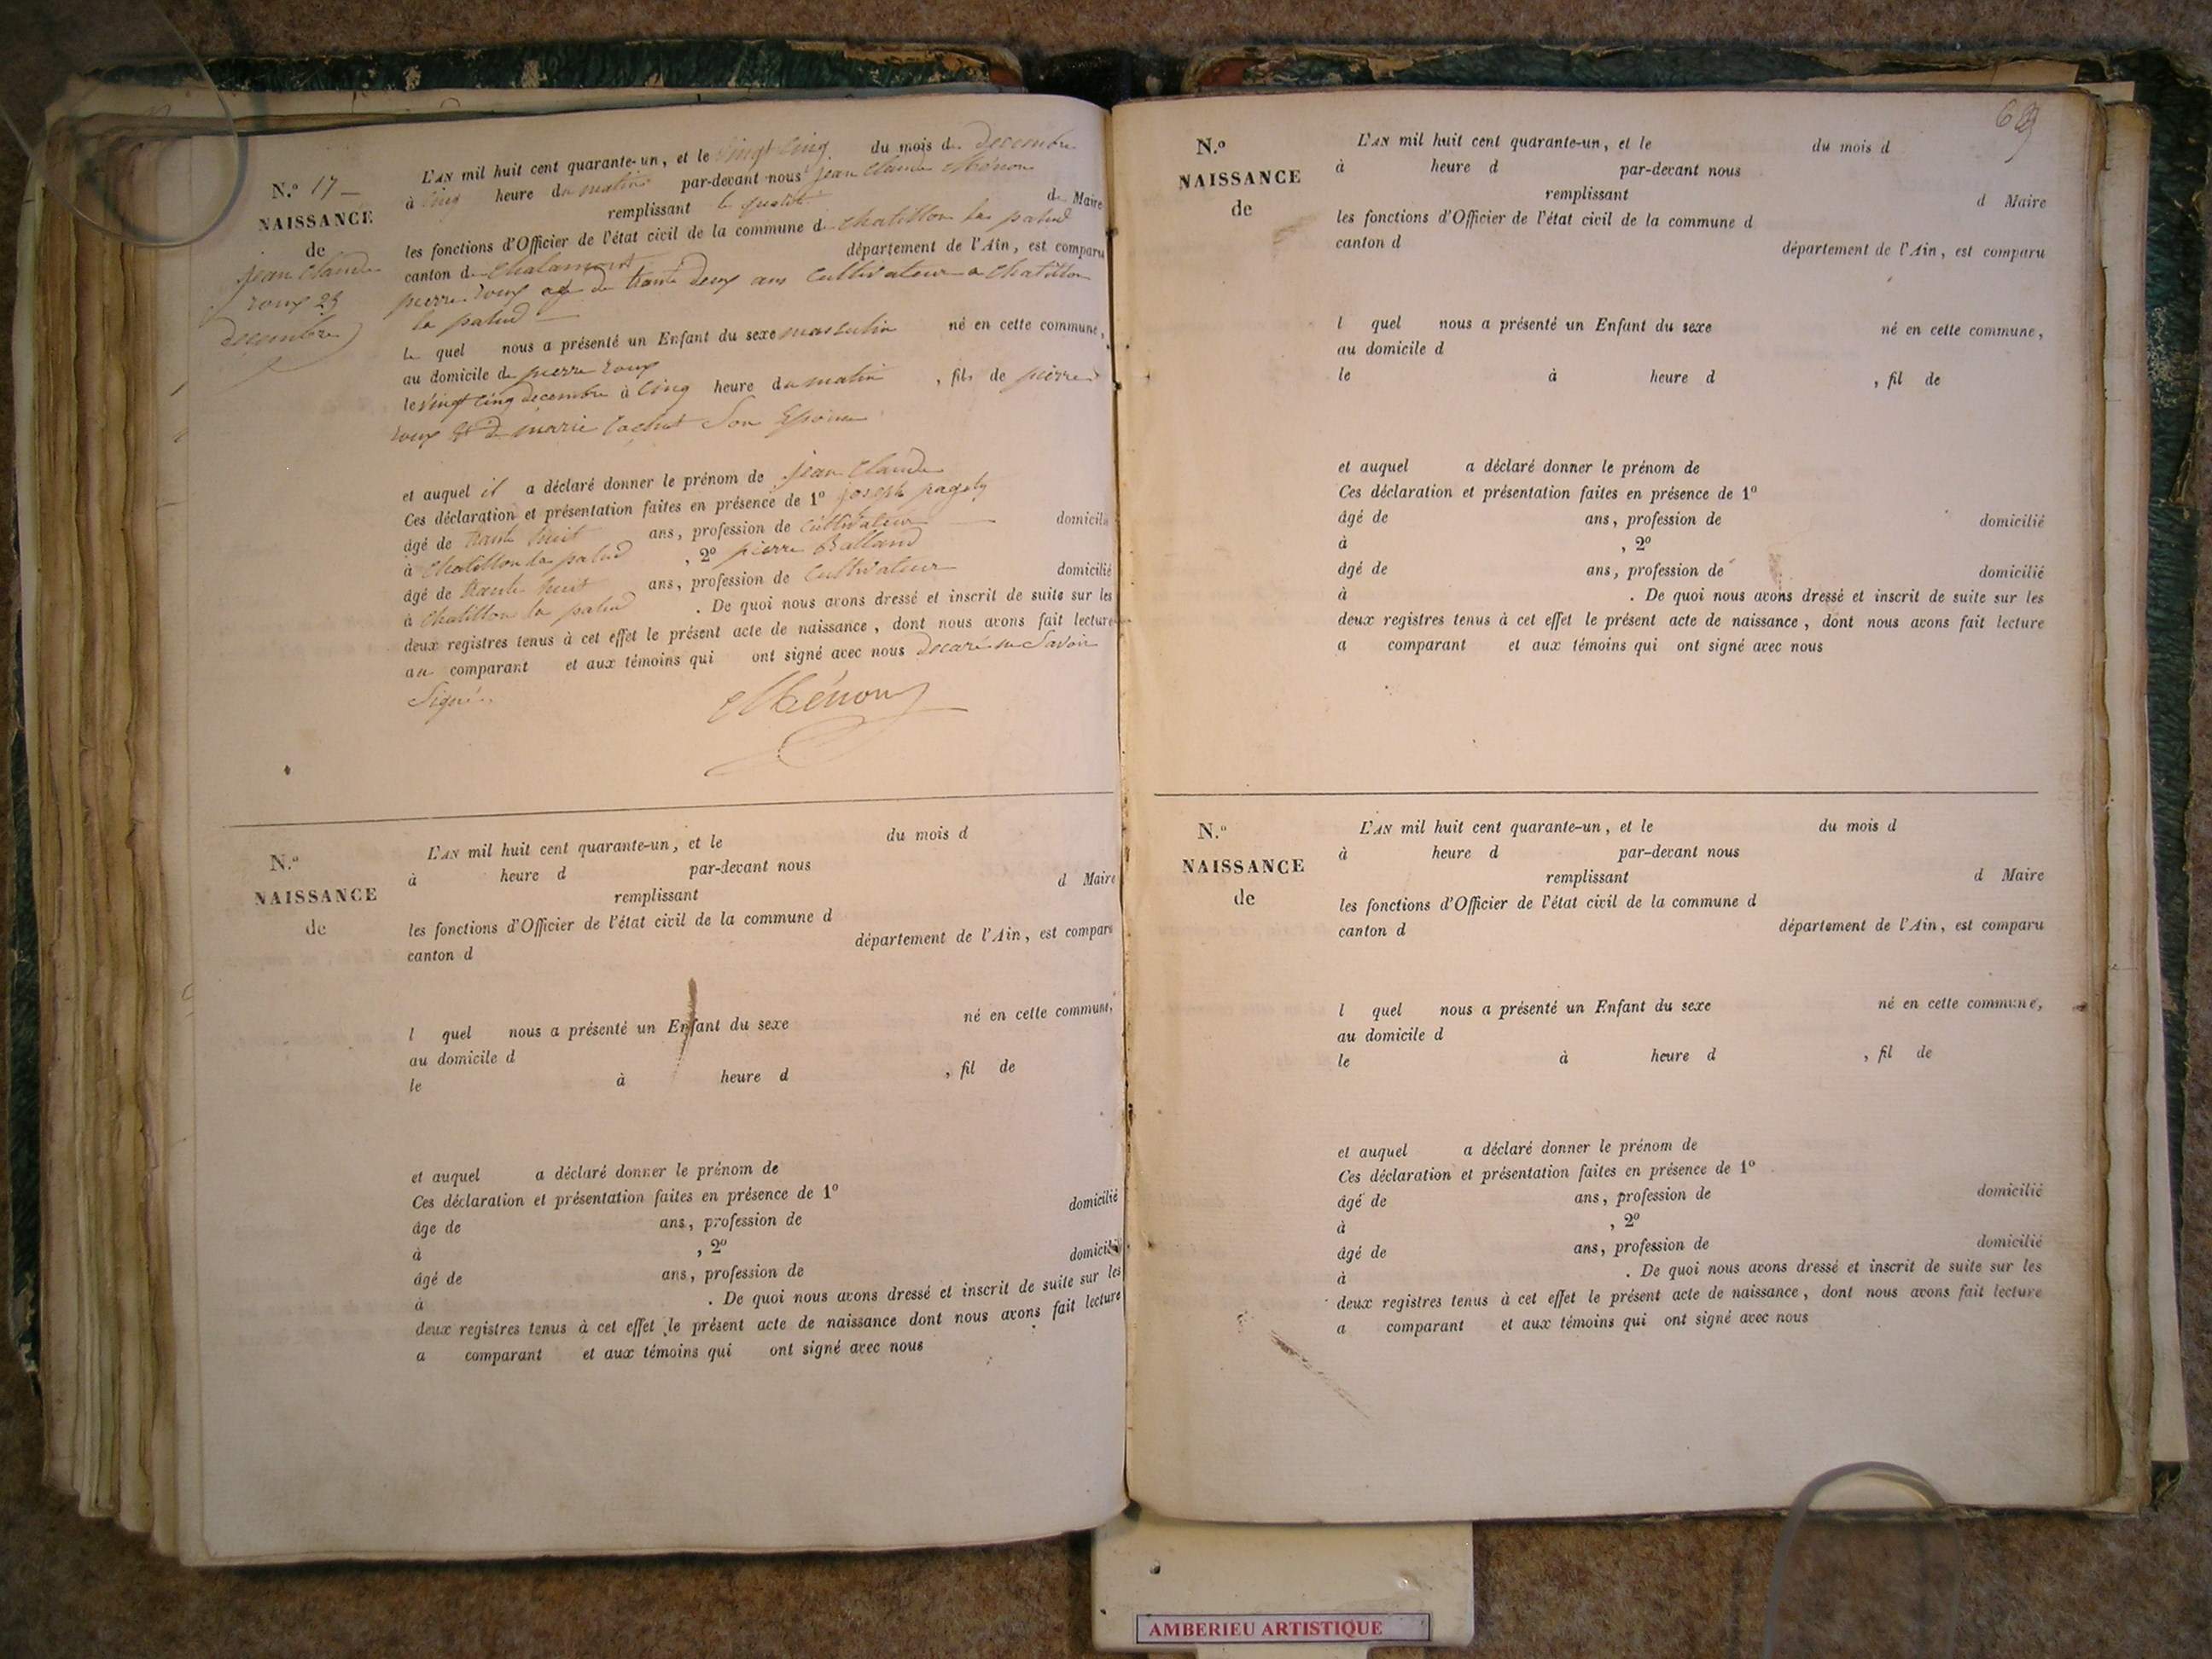 N.º 17 —
NAISSANCE
de
jean Claude
roux 25
decembre
L'AN mil huit cent quarante-un, et le vingt cinq du mois de decembre
à cinq heure du matin par-devant nous jean Claude Ménon
remplissant la qualité de Maire
les fonctions d'Officier de l'état civil de la commune de chatillon la palud
canton de Chalamont département de l'Ain, est comparu
pierre roux age de trante deux ans cultivateur a chatillon
la palud —
le quel nous a présenté un Enfant du sexe masculin né en cette commune,
au domicile de pierre roux
le vingt cinq decembre à cinq heure du matin, fils de pierre
roux et de marie Cachet Son Epouse
et auquel il a déclaré donner le prénom de jean Claude
Ces déclaration et présentation faites en présence de 1º joseph
âgé de trante huit ans, profession de cultivateur — domicilié
à Chatillon la palud, 2º pierre Balland
âgé de trante huit ans, profession de cultivateur domicilié
à chatillon la palud. De quoi nous avons dressé et inscrit de suite sur les
deux registres tenus à cet effet le présent acte de naissance, dont nous avons fait lecture
au comparant et aux témoins qui ont signé avec nous ne Savoir
Signé.
Ménon
N.º
NAISSANCE
de
L'AN mil huit cent quarante-un, et le du mois d
à heure d par-devant nous
remplissant d Maire
les fonctions d'Officier de l'état civil de la commune d
canton d département de l'Ain, est comparu
l quel nous a présenté un Enfant du sexe né en cette commune,
au domicile d
le à heure d , fil de
et auquel a déclaré donner le prénom de
Ces déclaration et présentation faites en présence de 1º
âge de ans, profession de domicilié
à , 2º
âgé de ans, profession de domicilié
à . De quoi nous avons dressé et inscrit de suite sur les
deux registres tenus à cet effet le présent acte de naissance dont nous avons fait lecture
a comparant et aux témoins qui ont signé avec nous
N.º
NAISSANCE
de
L'AN mil huit cent quarante-un, et le du mois d
à heure d par-devant nous
remplissant d Maire
les fonctions d'Officier de l'état civil de la commune d
canton d département de l'Ain, est comparu
l quel nous a présenté un Enfant du sexe né en cette commune,
au domicile d
le à heure d , fil de
et auquel a déclaré donner le prénom de
Ces déclaration et présentation faites en présence de 1º
âgé de ans, profession de domicilié
à , 2º
âgé de ans, profession de domicilié
à . De quoi nous avons dressé et inscrit de suite sur les
deux registres tenus à cet effet le présent acte de naissance, dont nous avons fait lecture
a comparant et aux témoins qui ont signé avec nous
N.º
NAISSANCE
de
L'AN mil huit cent quarante-un, et le du mois d
à heure d par-devant nous
remplissant d Maire
les fonctions d'Officier de l'état civil de la commune d
canton d département de l'Ain, est comparu
l quel nous a présenté un Enfant du sexe né en cette commune,
au domicile d
le à heure d , fil de
et auquel a déclaré donner le prénom de
Ces déclaration et présentation faites en présence de 1º
âgé de ans, profession de domicilié
à , 2º
âgé de ans, profession de domicilié
à . De quoi nous avons dressé et inscrit de suite sur les
deux registres tenus à cet effet le présent acte de naissance, dont nous avons fait lecture
a comparant et aux témoins qui ont signé avec nous
AMBERIEU ARTISTIQUE